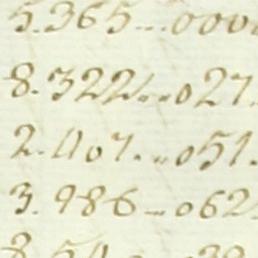 5.365...000
8.322...027.
2.407...051.
3.986...062.